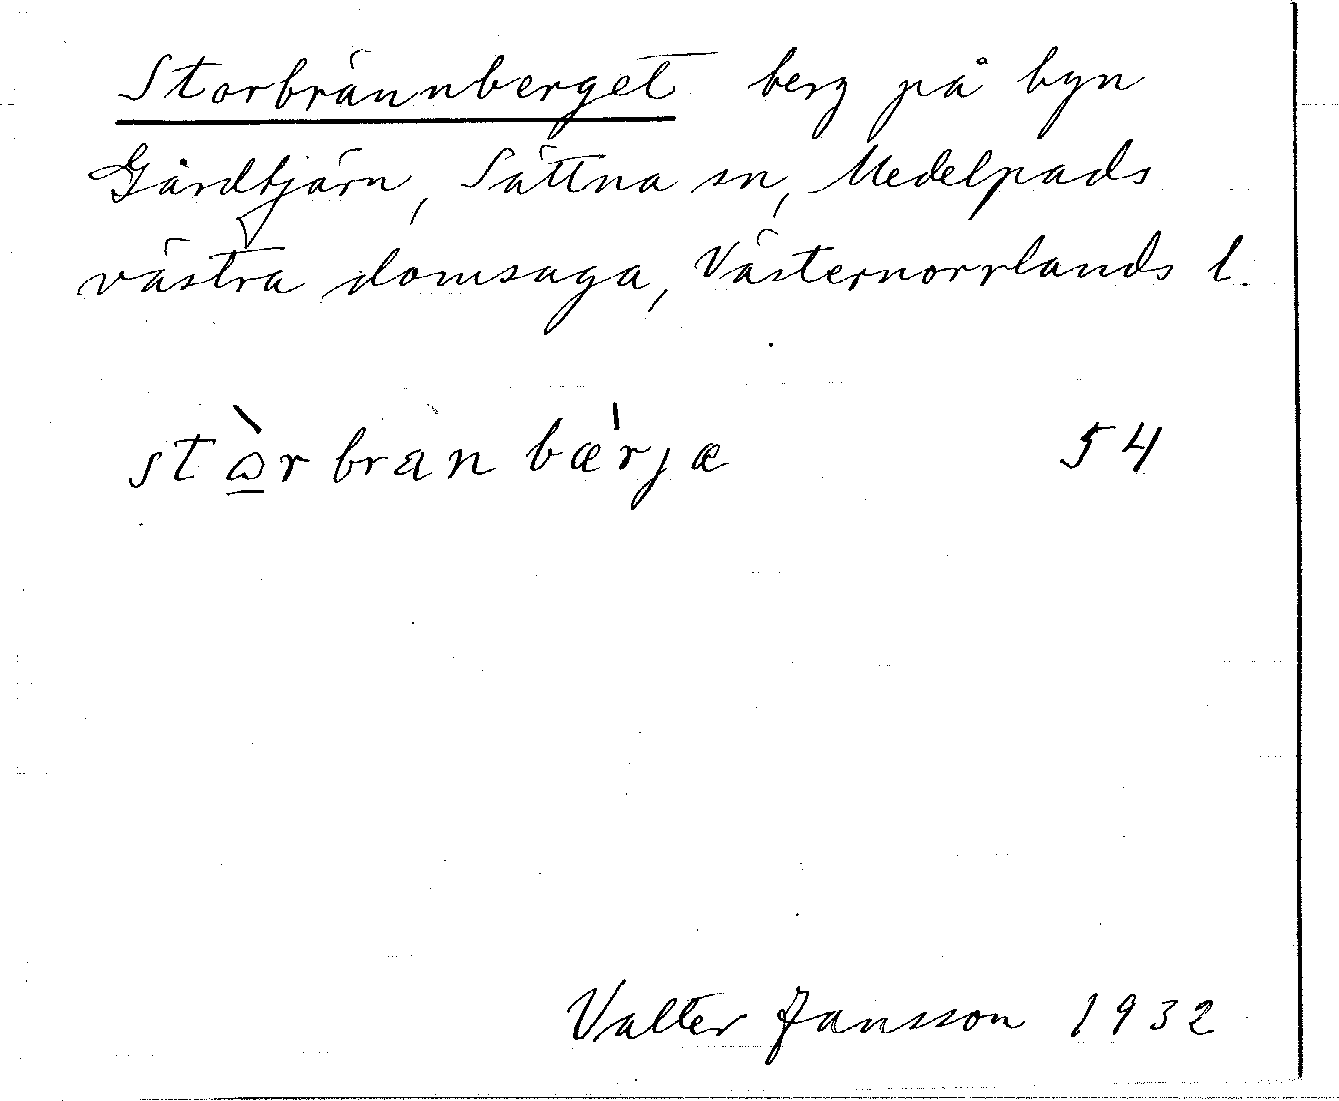 Storbrännberget berg på byn
Gårdtjärn, Sättna sn, Medelpads
västra domsaga, Västernorrlands l.
stò̱rbranbæ'rjæ 54
Valter Jansson 1932